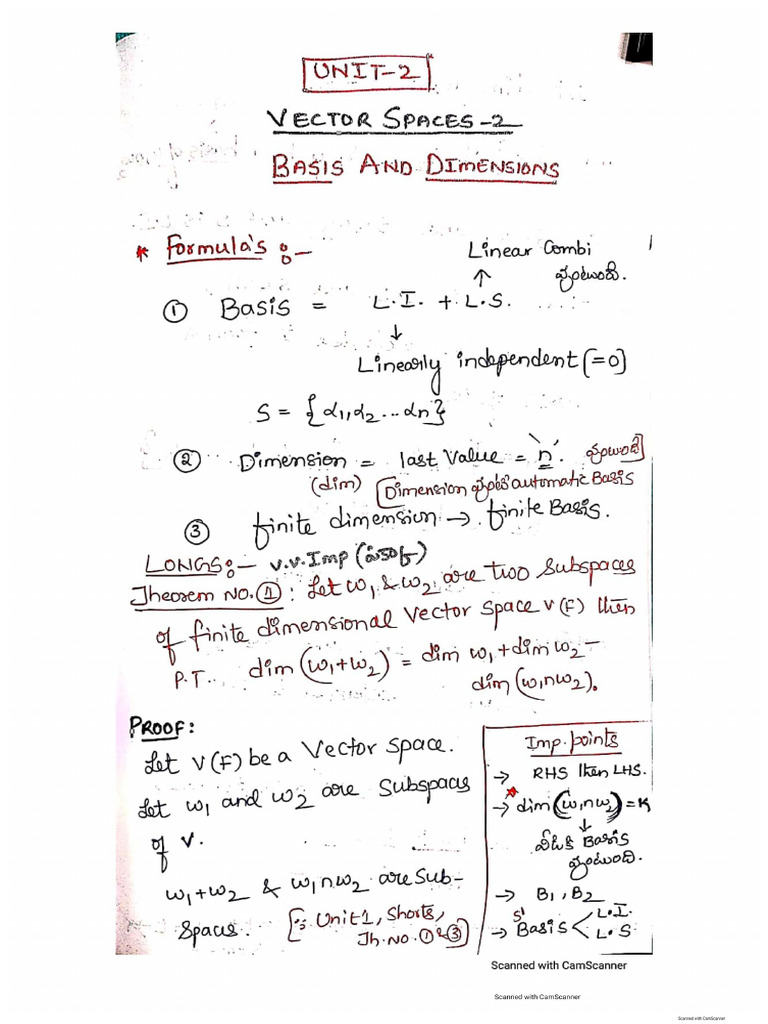 UNIT-2
VECTOR SPACES-2
BASIS AND DIMENSIONS
* Formula's :-
Linear Combi
వుంటుంది.
① Basis = L.I. + L.S.
Linearly independent (=0)
S = {α1, α2 ... αn}
② Dimension = last value = 'n'. వుంటుంది
(dim) [Dimension వుంటే automatic Basis
③ finite dimension → finite Basis.
LONGS:- V.V.Imp
Theorem No.①: Let W1 & W2 are two Subspaces
of finite dimensional Vector Space V(F) then
P.T. dim (W1+W2) = dim W1 + dim W2 -
dim (W1∩W2).
PROOF:
Let V(F) be a Vector Space.
Let W1 and W2 are Subspaces
of V.
W1+W2 & W1∩W2 are Sub-
Spaces. [∵ Unit 1, Shorts,
Th.No. ① & ③]
Imp. points
→ RHS then LHS.
* → dim (W1∩W2) = K
వీటికి Basis
వుంటుంది.
→ B1, B2
S'
→ Basis < L.I.
L.S
Scanned with CamScanner
Scanned with CamScanner
Scanned with CamScanner